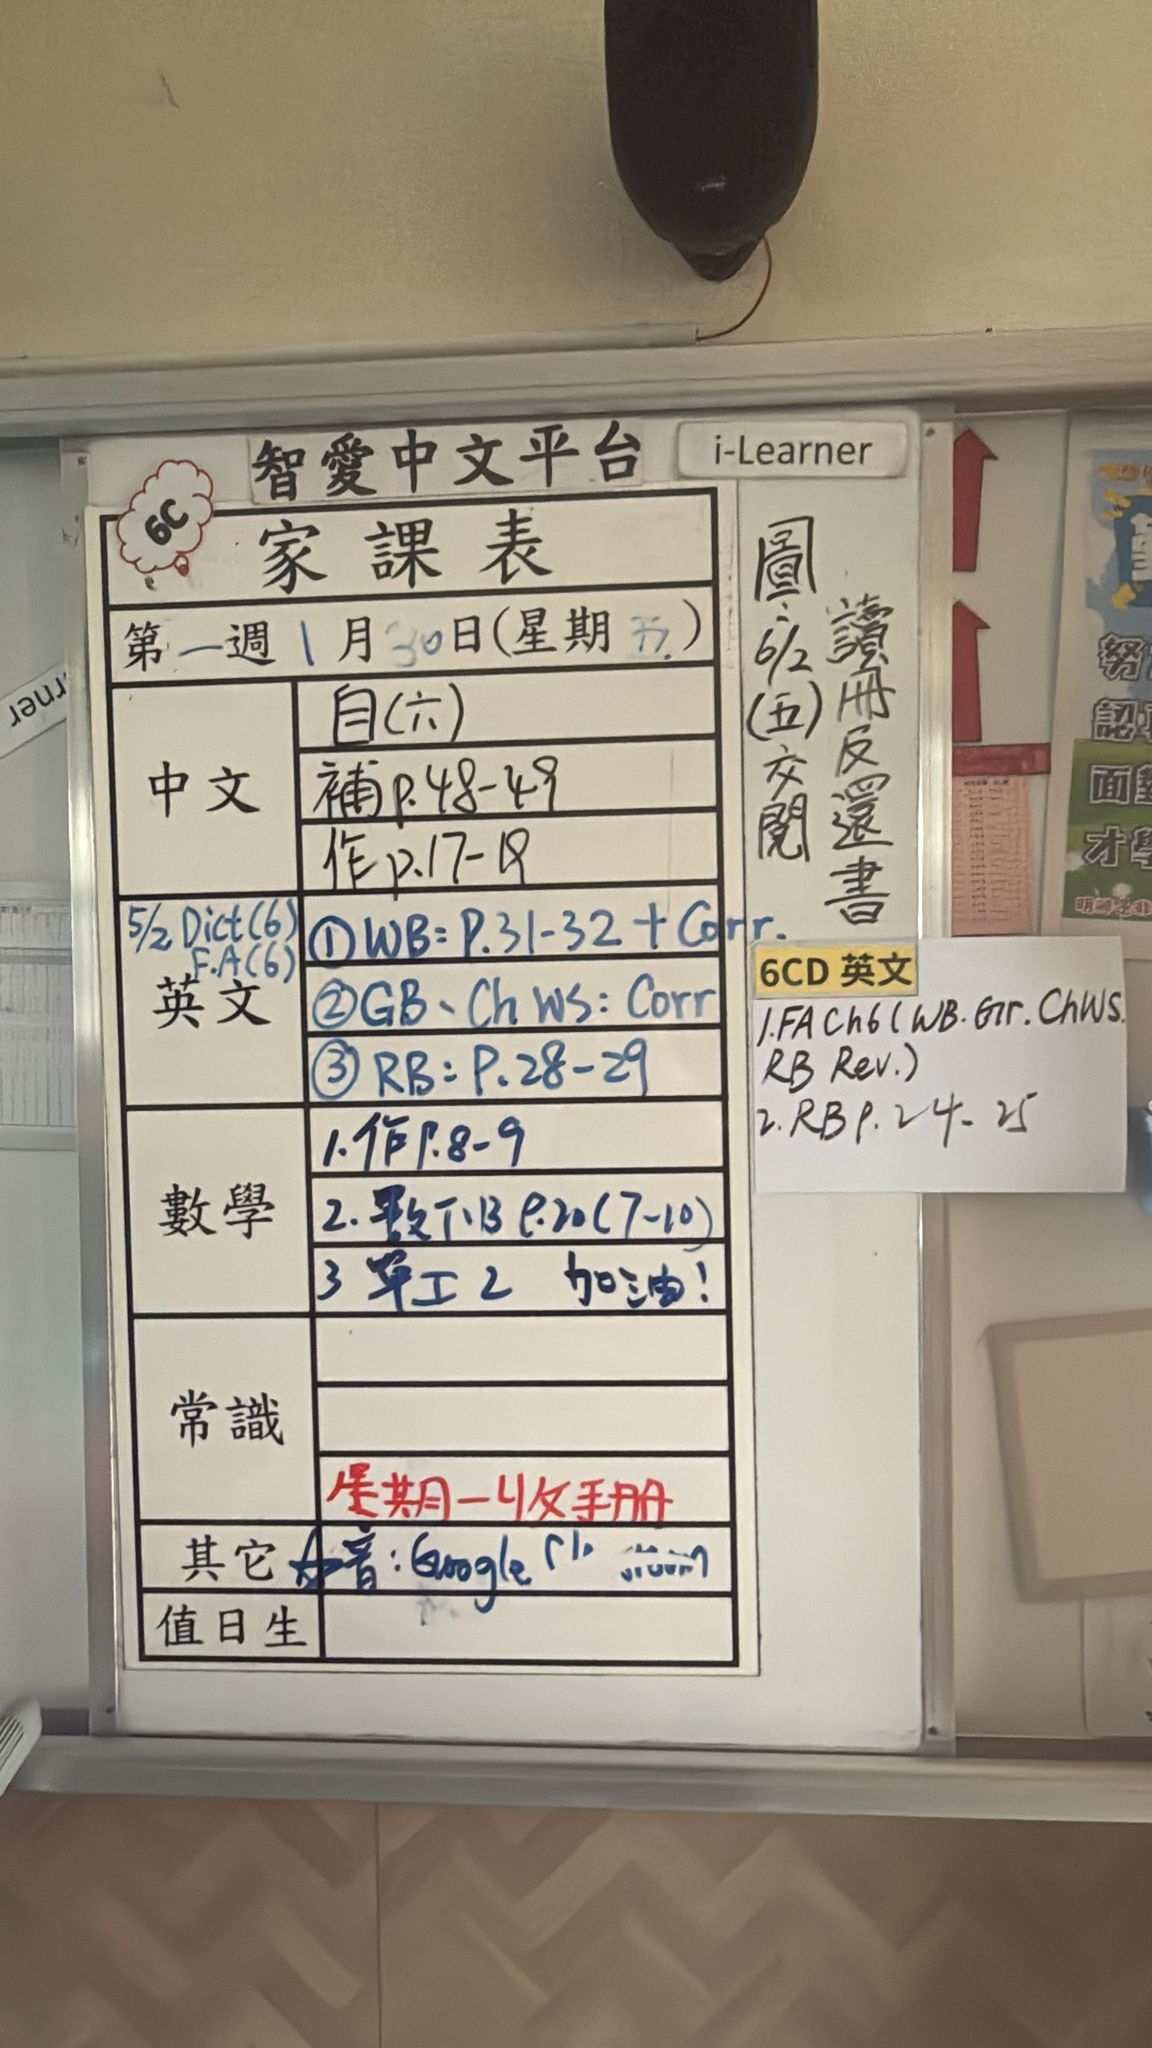 智愛中文平台
i-Learner
6C
家課表
第一週 1月30日(星期五)
中文
自(六)
補p.48-49
作p.17-19
5/2 Dict(6)
F.A(6)
英文
①WB: P.31-32 + Corr.
②GB、Ch WS: Corr
③RB: P.28-29
數學
1.作P.8-9
2. 數下B P.20(7-10)
3 單工2 加油!
常識
星期一收手冊
其它
音: Google
值日生
圖: 6/2(五)交閱
讀冊及還書
6CD 英文
1.FA Ch6 (WB. Gr. ChWS.
RB Rev.)
2.RB P.24-25
rner
努
認
面對
才學